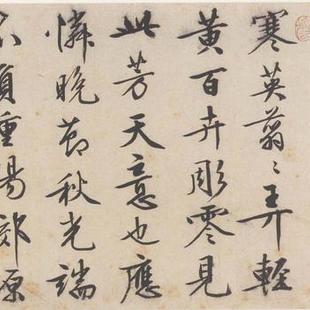 寒英翦翦弄輕
黄百卉彫零見
此芳天意也應
憐晚節秋光端
不負重陽郊原